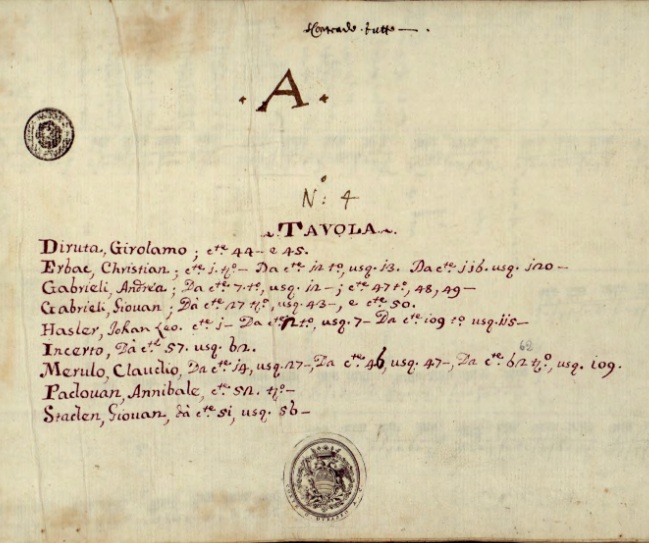 tutte —.
· A ·
N.º 4
TAVOLA.
Diruta, Girolamo; cte. 44 — e 45.
Erbac, Christian; cte. j. tjo — Da cte. j2 to, usq. j3. Da cte. jj6. usq. j20 —
Gabrieli, Andrea; Da cte. 7. to, usq. j2 —; cte. 47 to, 48, 49 —
Gabrieli, Giouan; Dà cte. 27 tjo, usq. 43 —, e cte. 50.
Hasler, Johan Leo. cte. j — Da cte. 2 to, usq. 7 — Da cte. j09 to usq. jj5 —
62
Incerto, Dà cte. 57. usq. 62.
Merulo, Claudio, Da cte. j4, usq. 27 —, Da cte. 46, usq. 47 —, Da cte. 62 tjo, usq. j09.
Padouan, Annibale, cte. 52. tjo —
Staden, Giouan, dà cte. 5j, usq. 56 —